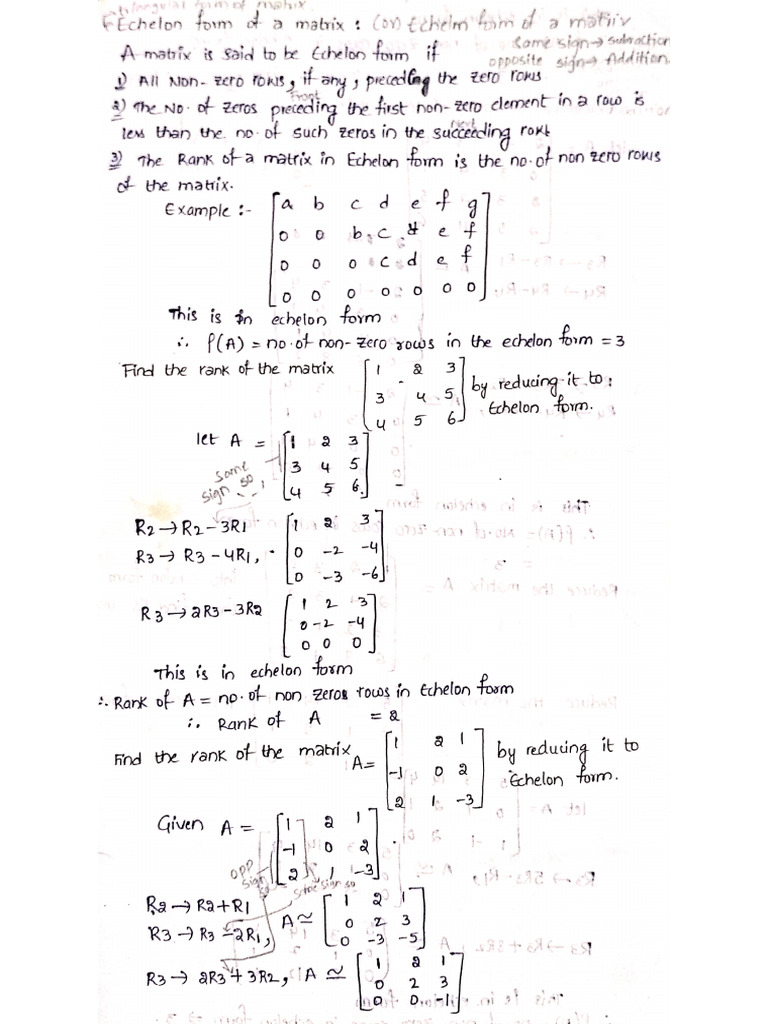 Echelon form of a matrix : (or) Echelon form of a matrix
Same sign → subraction
A matrix is said to be Echelon form if
opposite sign → Addition.
1) All Non-zero rows, if any, preceding the zero rows
Front
2) The No. of zeros preceding the first non-zero element in a row is
next
less than the no. of such zeros in the succeeding row
3) The Rank of a matrix in Echelon form is the no. of non zero rows
of the matrix.
Example :- [a b c d e f g]
[0 0 b c d e f]
[0 0 0 c d e f]
[0 0 0 0 0 0 0]
This is in echelon form
∴ ρ(A) = no. of non-zero rows in the echelon form = 3
Find the rank of the matrix [1 2 3] by reducing it to :
[3 4 5] Echelon form.
[4 5 6]
let A = [1 2 3]
[3 4 5]
[4 5 6]
Same
sign so
R2 → R2 - 3R1 [1 2 3]
R3 → R3 - 4R1, [0 -2 -4]
[0 -3 -6]
R3 → 2R3 - 3R2 [1 2 3]
[0 -2 -4]
[0 0 0]
This is in echelon form
∴ Rank of A = no. of non zeros rows in Echelon form
∴ Rank of A = 2
Find the rank of the matrix A = [1 2 1] by reducing it to
[-1 0 2] Echelon form.
[2 1 -3]
Given A = [1 2 1]
[-1 0 2]
[2 1 -3]
opp
sign
so
same sign so
R2 → R2 + R1 [1 2 1]
R3 → R3 - 2R1, A ≃ [0 2 3]
[0 -3 -5]
R3 → 2R3 + 3R2, A ≃ [1 2 1]
[0 2 3]
[0 0 -1]